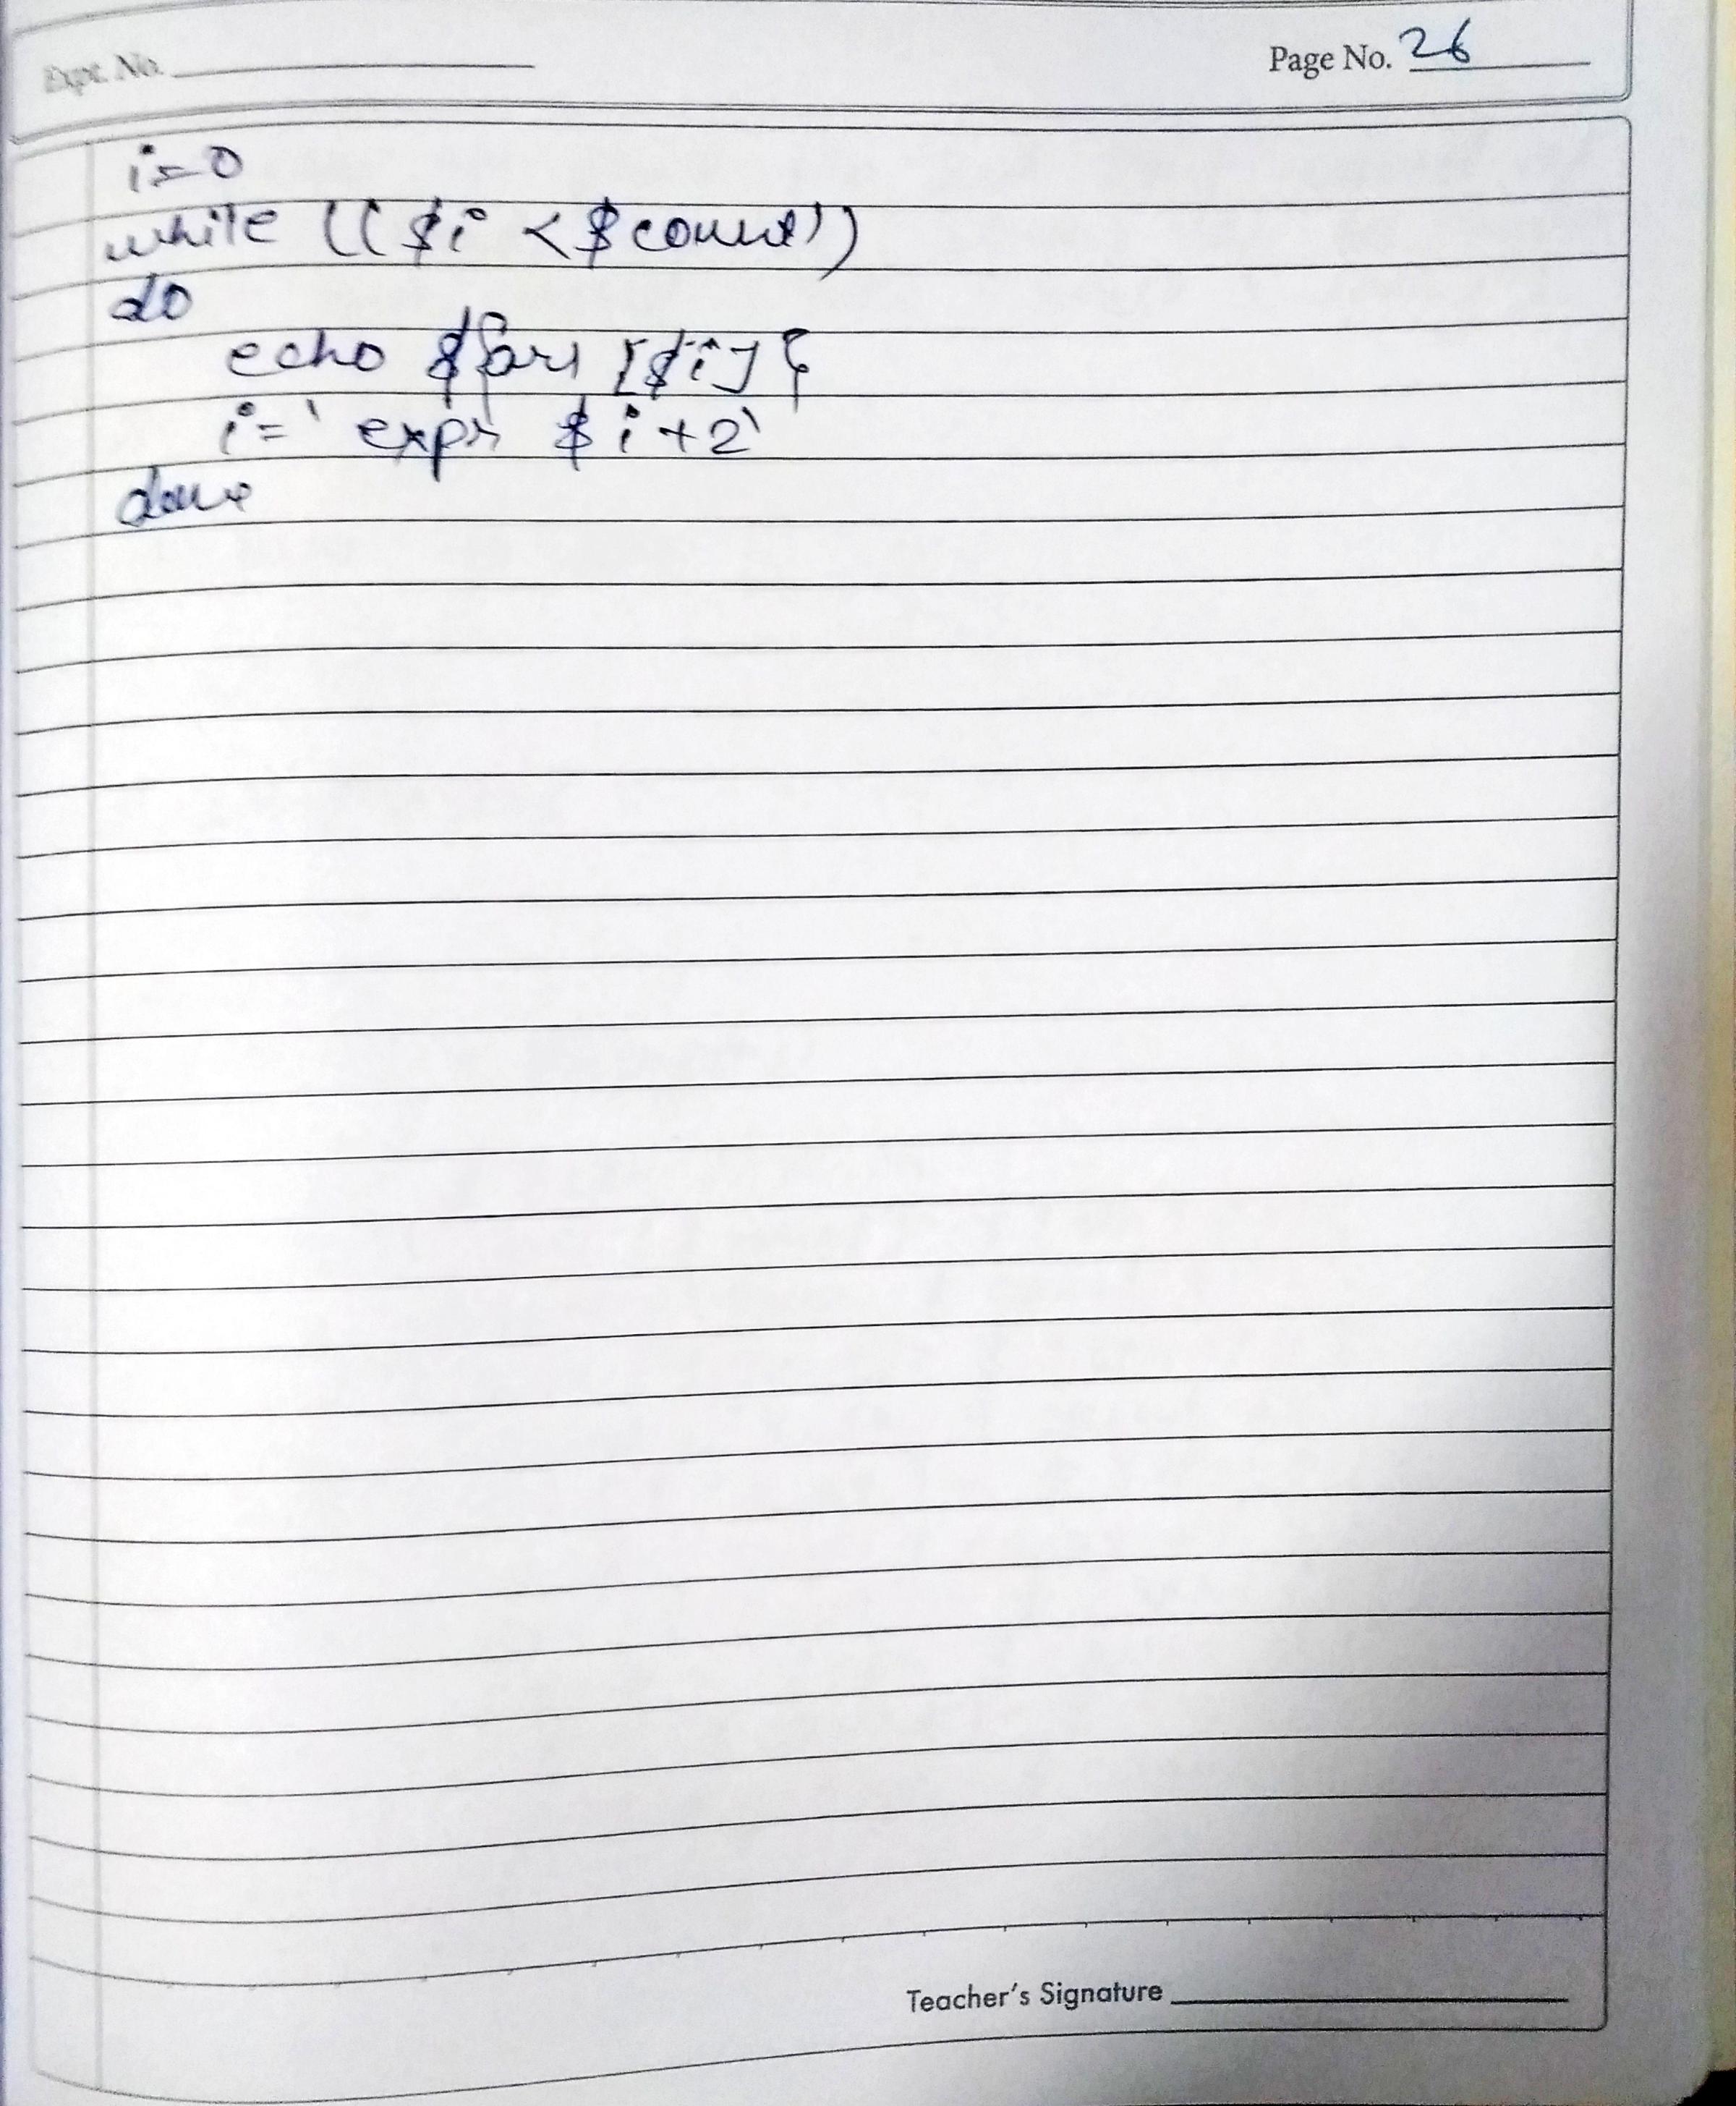 Expt. No.
Page No. 26
i=0
while (($i < $count))
do
echo ${arr [$i]}
i=` expr $i+2`
done
Teacher's Signature